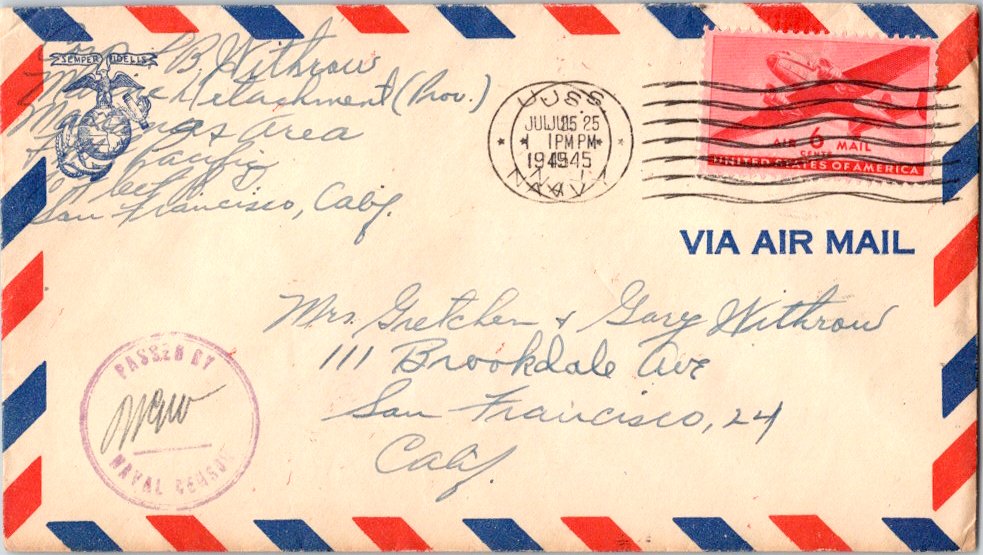 SEMPER FIDELIS
B. Withrow
Marine Detachment (Prov.)
Marianas Area
Pacific
San Francisco, Calif.
U.S.
JUL 25
1 PM
1945
NAVY
AIR 6 MAIL
CENTS
UNITED STATES OF AMERICA
VIA AIR MAIL
Mrs. Gretchen & Gary Withrow
111 Brookdale Ave
San Francisco, 24
Calif.
PASSED BY
NAVAL CENSOR